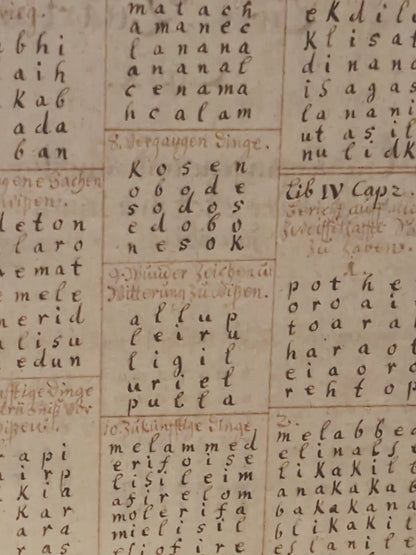 rieg.
b h i
a i h
K a b
a d a
b a n
gene Sachen
wißen.
l e t o n
l a r o
e m a t
e m e l e
n e r i d
l i s u
e d u n
Dinge
a p i
i r p
K i a
K a r
a r a
r a s
m a t a c h
a m a n e c
l a n a n a
a n a n a l
c e n a m a
h c a l a m
8. Vergangen Dinge.
K o s e n
o b o d e
s o d o s
e d o b o
n e s o K
9. Wunder Zeichen u
Witterung zu wißen.
a l l u p
l e i r u
l i g i l
u r i e l
p u l l a
10. Zukünfftige Dinge
m e l a m m e d
e r i f o i s e
l i s i l e i m
a f i r e l o m
m o l e r i f a
m i e l i s i l
e s i o f i r e
e K d i l
K l i s a t
d i n a n
i s a g a s
l a n a n i
u t a s i l
n u l i d K
Lib IV Cap 2
zu haben.
1.
p o t h e
o r o a i
t o a r a
h a r a o t
e i a o r o
r e h t o p
2.
m e l a b b e
e l i n a l s
l i K a K i l
a n a K a K a b
b a K a K a n a
b l i K a K i l
e s l a n i l e